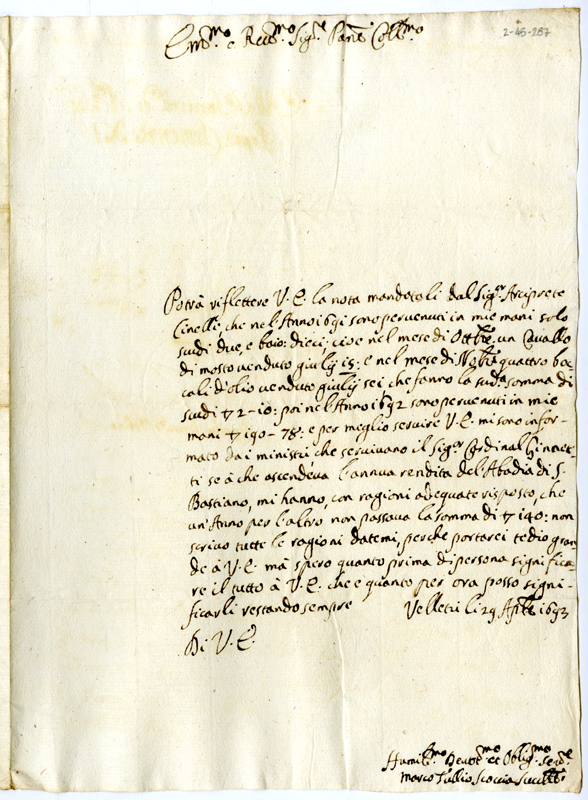 2-45-287
Em.mo e Rev.mo Sig.re Pan.e Coll.mo
Potrà riflettere V. E. la nota mandatali dal Sig.r Arciprete
Cinelli, che nel'Anno 1691 sono pervenuti in mie mani solo
scudi due, e baio: dieci: cioe nel mese di Ottbre, un Cavallo
di mosto venduto giulij 15: e nel mese di Nỹbre quattro boc-
cali d'olio venduto giulij sei che fanno la sud.a somma di
scudi ▽ 2-10: poi nel'Anno 1692 sono pervenuti in mie
mani ▽ 190-78: e per meglio servire V. E. mi sono infor-
mato da i ministri che servivano il Sig.r Cardinal Ginnet-
ti se à che ascendeva l'annua rendita del'Abadia di S.
Bastiano, mi hanno, con ragioni adequate risposto, che
un'Anno per l'altro non passava la somma di ▽ 140: non
scrivo tutte le ragioni datemi, perche portarei tedio gran-
de à V. E. mà spero quanto prima di persona significa-
re il tutto à V. E. che e quanto per ora posso signi-
ficarli restando sempre Velletri li 29 Aprile 1693
Di V. E.
Humil.mo Devot.mo et Oblig.mo Ser.e
Marco Tullio Scoccia